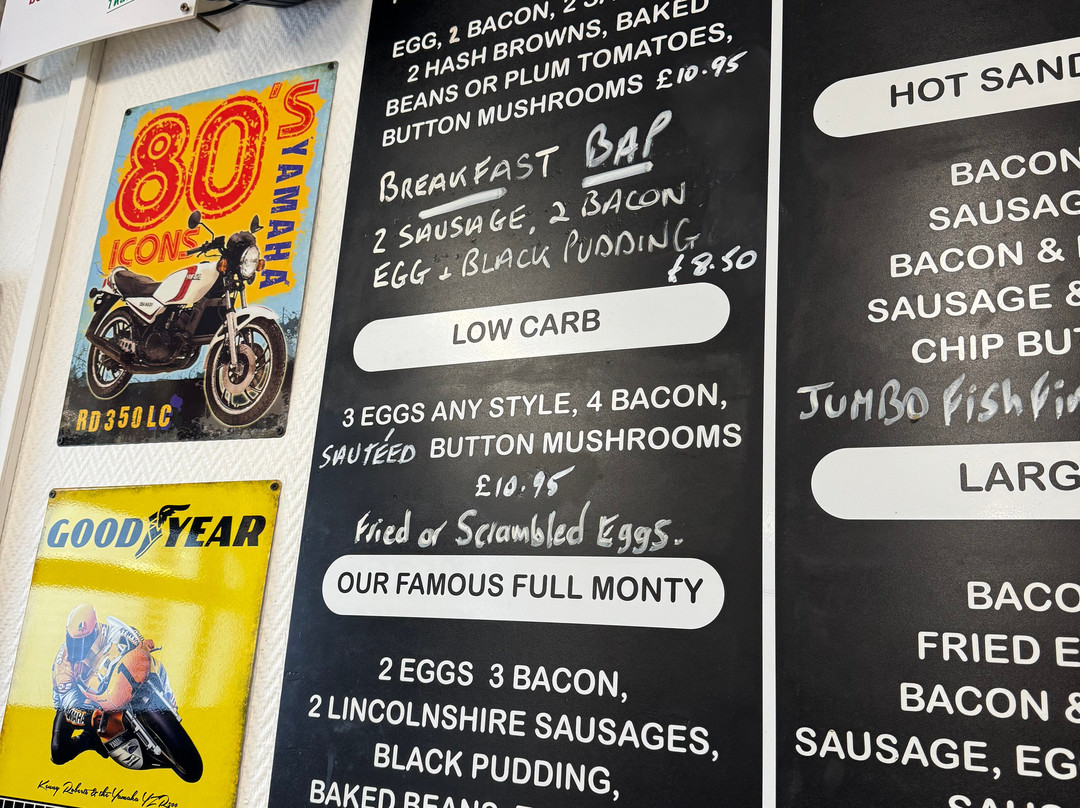 80's
YAMAHA
ICONS
RD 350 LC
GOODYEAR
Kenny Roberts & the Yamaha YZR500
EGG, 2 BACON, 2
2 HASH BROWNS, BAKED
BEANS OR PLUM TOMATOES,
BUTTON MUSHROOMS £10.95
BREAKFAST BAP
2 SAUSAGE, 2 BACON
EGG + BLACK PUDDING
£8.50
LOW CARB
3 EGGS ANY STYLE, 4 BACON,
SAUTÉED BUTTON MUSHROOMS
£10.95
Fried or Scrambled Eggs.
OUR FAMOUS FULL MONTY
2 EGGS 3 BACON,
2 LINCOLNSHIRE SAUSAGES,
BLACK PUDDING,
BAKED BEANS,
HOT SAND
BACON
SAUSAG
BACON &
SAUSAGE &
CHIP BUT
JUMBO Fish Fin
LARG
BACO
FRIED E
BACON &
SAUSAGE, EG